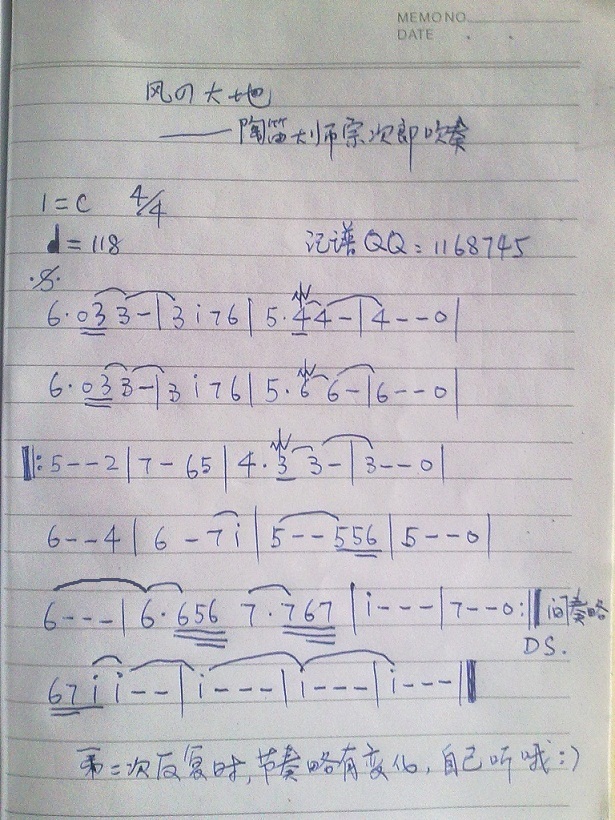 MEMO NO.
DATE . .
风の大地
——陶笛大师宗次郎吹奏
1=C 4/4
♩=118 记谱QQ:1168745
𝄋
6·033-|3i76|5·44-|4--0|
6·033-|3i76|5·66-|6--0|
‖:5--2|7-65|4·33-|3--0|
6--4|6-7i|5--556|5--0|
6---|6·656 7·767|i---|7--0:‖间奏略
DS.
67ii--|i---|i---|i---‖
第二次反复时,节奏略有变化,自己听哦:)